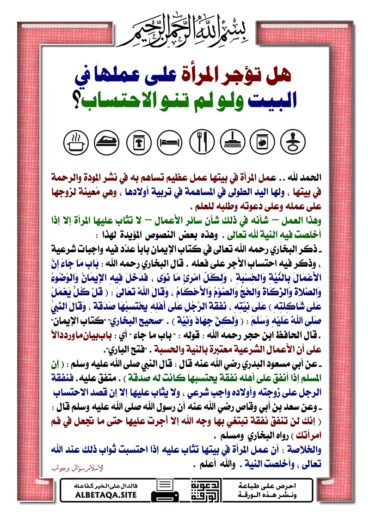 بسم الله الرحمن الرحيم
هل تؤجر المرأة على عملها في
البيت ولو لم تنو الاحتساب؟
الحمد لله .. عمل المرأة في بيتها عمل عظيم تساهم به في نشر المودة والرحمة
في بيتها ، ولها اليد الطولى في المساهمة في تربية أولادها ، وهي معينة لزوجها
على عمله وعلى دعوته وطلبه للعلم .
وهذا العمل – شأنه في ذلك شأن سائر الأعمال – لا تثاب عليها المرأة إلا إذا
أخلصت فيه النية لله تعالى . وهذه بعض النصوص المؤيدة لهذا :
ـ ذكر البخاري رحمه الله تعالى في كتاب الإيمان بابا عدد فيه واجبات شرعية
، وذكر فيه احتساب الأجر على فعله . قال البخاري رحمه الله : باب ما جاء إن
الأعمال بالنية والحسبة ، ولكل امرئ ما نوى ، فدخل فيه الإيمان والوضوء
والصلاة والزكاة والحج والصوم والأحكام ، وقال الله تعالى : ( قل كل يعمل
على شاكلته ) على نيته . نفقة الرجل على أهله يحتسبها صدقة . وقال النبي
صلى الله عليه وسلم : ( ولكن جهاد ونية ) . "صحيح البخاري" "كتاب الإيمان"
ـ قال الحافظ ابن حجر رحمه الله : قوله : " باب ما جاء " أي : باب بيان ما ورد دالا
على أن الأعمال الشرعية معتبرة بالنية والحسبة . "فتح الباري".
ـ عن أبي مسعود البدري رضي الله عنه قال : قال النبي صلى الله عليه وسلم : ( إن
المسلم إذا أنفق على أهله نفقة يحتسبها كانت له صدقة ) . متفق عليه. فنفقة
الرجل على زوجته وأولاده واجب شرعي ، ولا يثاب عليها إلا إن قصد الاحتساب
ـ وعن سعد بن أبي وقاص رضي الله عنه أن رسول الله صلى الله عليه وسلم قال :
( إنك لن تنفق نفقة تبتغي بها وجه الله إلا أجرت عليها حتى ما تجعل في فم
امرأتك ) رواه البخاري ومسلم .
والخلاصة : أن عمل المرأة في بيتها تثاب عليه إذا احتسبت ثواب ذلك عند الله
تعالى ، وأخلصت النية . والله أعلم .
الإسلام سؤال وجواب
احرص على طباعة
ونشر هذه الورقة
الدعوية
الورقة
فالدال على الخير كفاعله
ALBETAQA.SITE